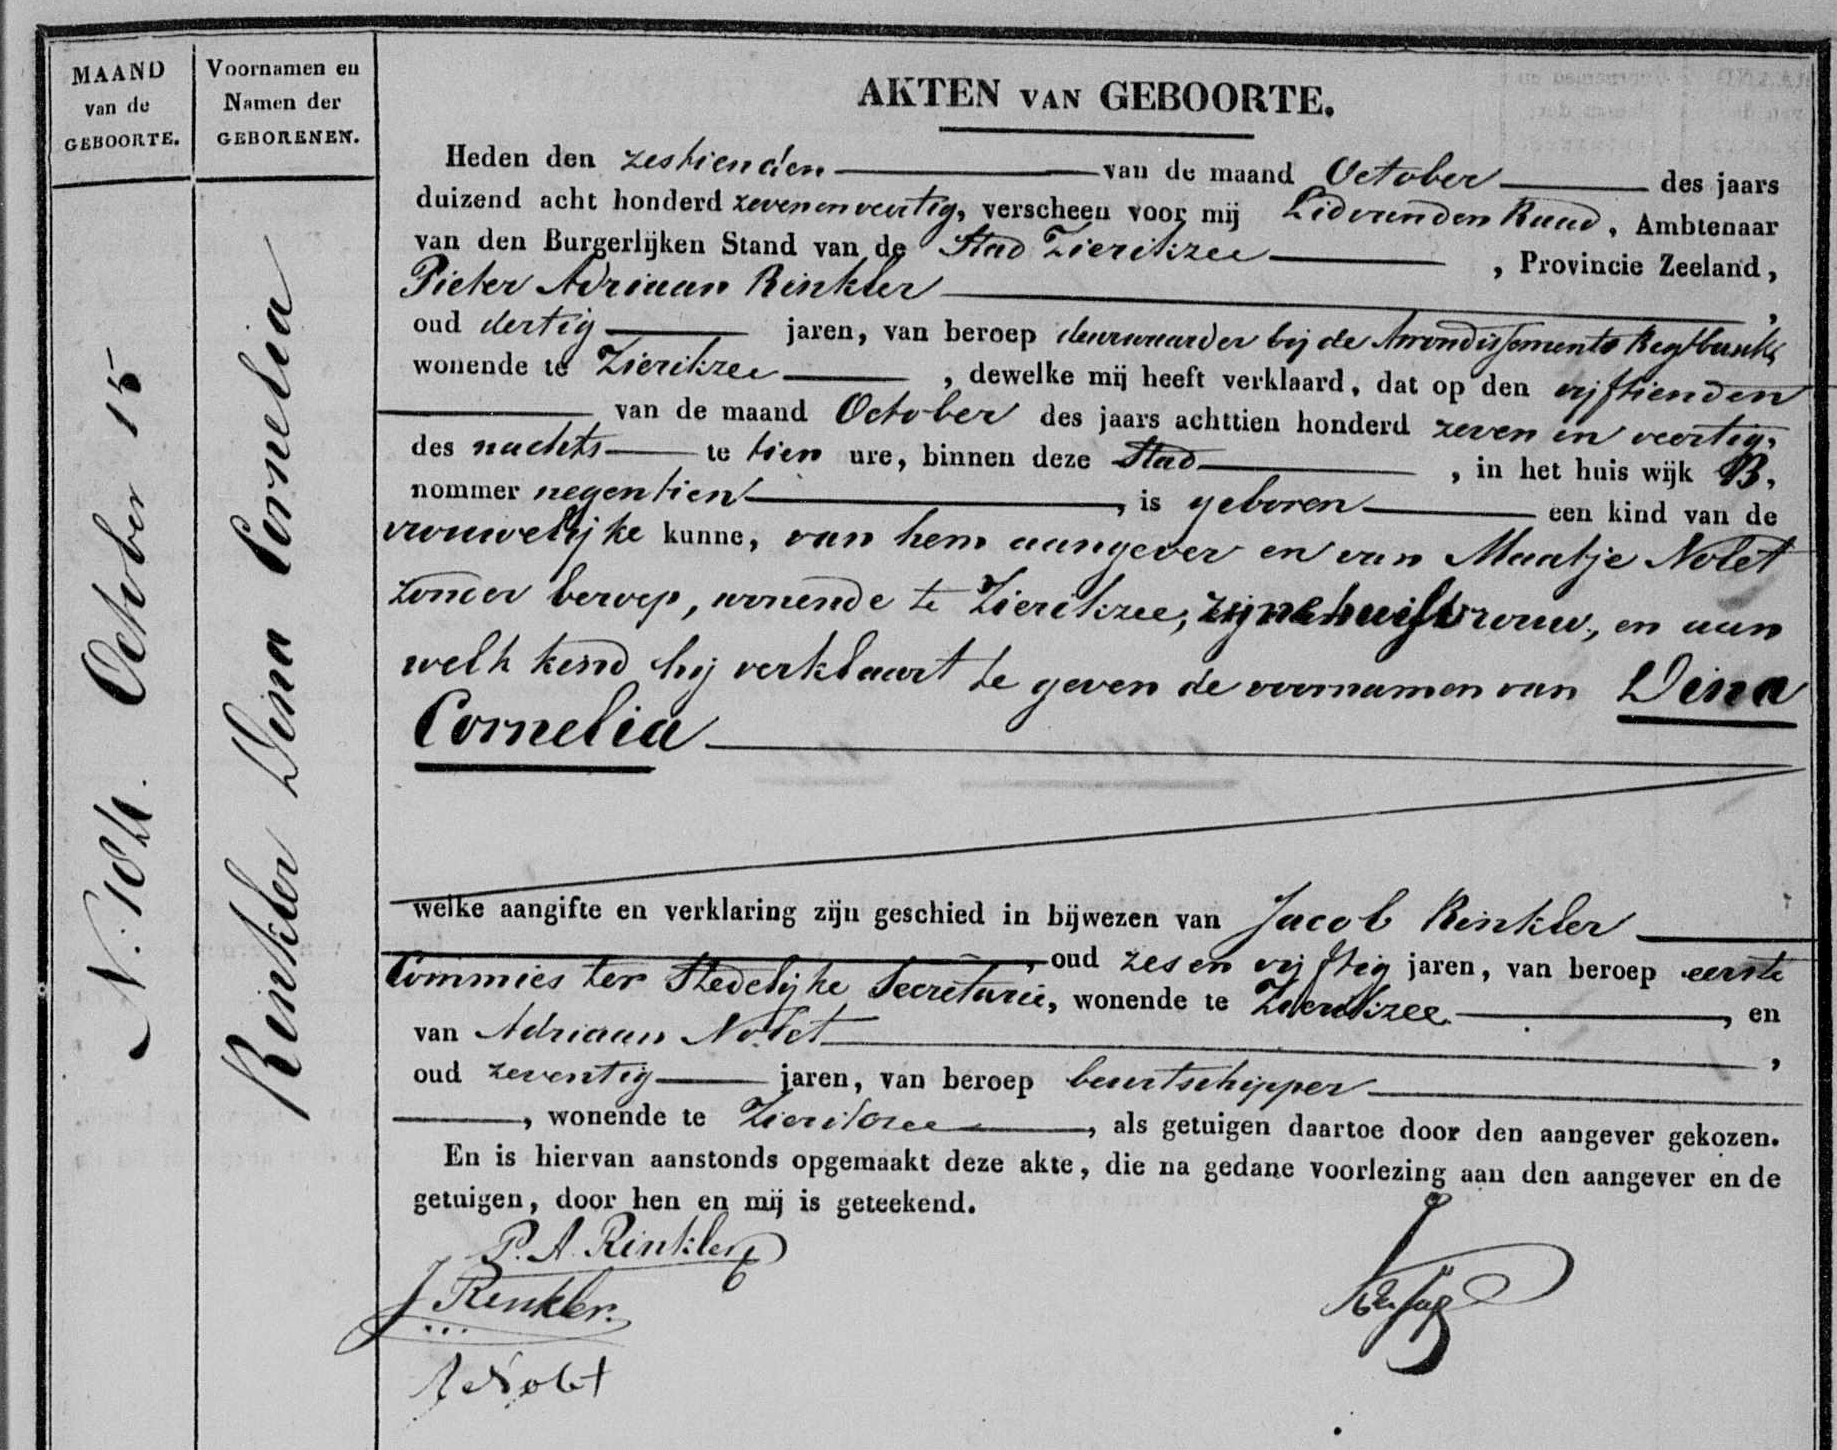 MAAND
van de
GEBOORTE.
Voornamen en
Namen der
GEBORENEN.
N. 184. October 15
Rinkler Dina Cornelia
AKTEN VAN GEBOORTE.
Heden den zestienden van de maand October des jaars
duizend acht honderd zevenenveertig, verscheen voor mij Lid van den Raad, Ambtenaar
van den Burgerlijken Stand van de Stad Zierikzee, Provincie Zeeland,
Pieter Adriaan Rinkler,
oud dertig jaren, van beroep deurwaarder bij de Arrondissements Regtbank,
wonende te Zierikzee, dewelke mij heeft verklaard, dat op den vijftienden
van de maand October des jaars achttien honderd zeven en veertig,
des nachts te tien ure, binnen deze Stad, in het huis wijk B,
nommer negentien, is geboren een kind van de
vrouwelijke kunne, van hem aangever en van Maatje Nolet
zonder beroep, wonende te Zierikzee, zijne huisvrouw, en aan
welk kind hij verklaart te geven de voornamen van Dina
Cornelia
welke aangifte en verklaring zijn geschied in bijwezen van Jacob Rinkler
, oud zes en vijftig jaren, van beroep eerste
Commies ter Stedelijke Secretarie, wonende te Zierikzee, en
van Adriaan Nolet,
oud zeventig jaren, van beroep beurtschipper
, wonende te Zierikzee, als getuigen daartoe door den aangever gekozen.
En is hiervan aanstonds opgemaakt deze akte, die na gedane voorlezing aan den aangever en de
getuigen, door hen en mij is geteekend.
P. A. Rinkler
J Rinkler.
A Nolet